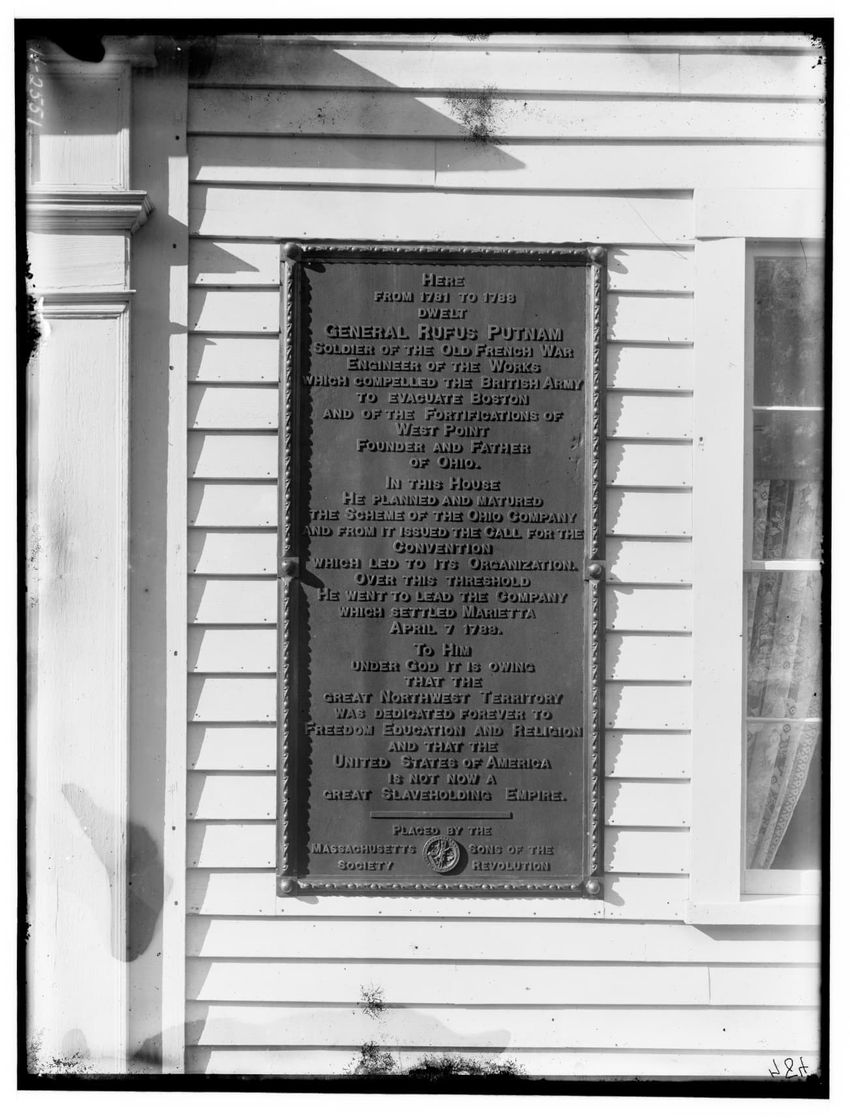 HERE
FROM 1781 TO 1788
DWELT
GENERAL RUFUS PUTNAM
SOLDIER OF THE OLD FRENCH WAR
ENGINEER OF THE WORKS
WHICH COMPELLED THE BRITISH ARMY
TO EVACUATE BOSTON
AND OF THE FORTIFICATIONS OF
WEST POINT
FOUNDER AND FATHER
OF OHIO.
IN THIS HOUSE
HE PLANNED AND MATURED
THE SCHEME OF THE OHIO COMPANY
AND FROM IT ISSUED THE CALL FOR THE
CONVENTION
WHICH LED TO ITS ORGANIZATION.
OVER THIS THRESHOLD
HE WENT TO LEAD THE COMPANY
WHICH SETTLED MARIETTA
APRIL 7 1788.
TO HIM
UNDER GOD IT IS OWING
THAT THE
GREAT NORTHWEST TERRITORY
WAS DEDICATED FOREVER TO
FREEDOM EDUCATION AND RELIGION
AND THAT THE
UNITED STATES OF AMERICA
IS NOT NOW A
GREAT SLAVEHOLDING EMPIRE.
PLACED BY THE
MASSACHUSETTS SONS OF THE
SOCIETY REVOLUTION
484